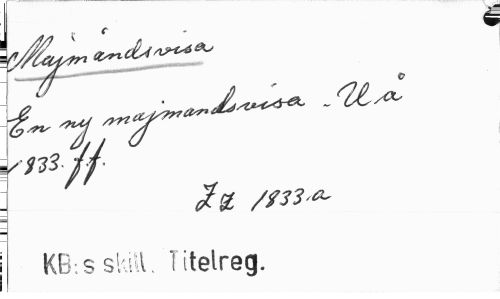 Majmåndsvisa
En ny majmandsvisa. U å
1833. ff.
Zz 1833.a
KB:s skill. Titelreg.